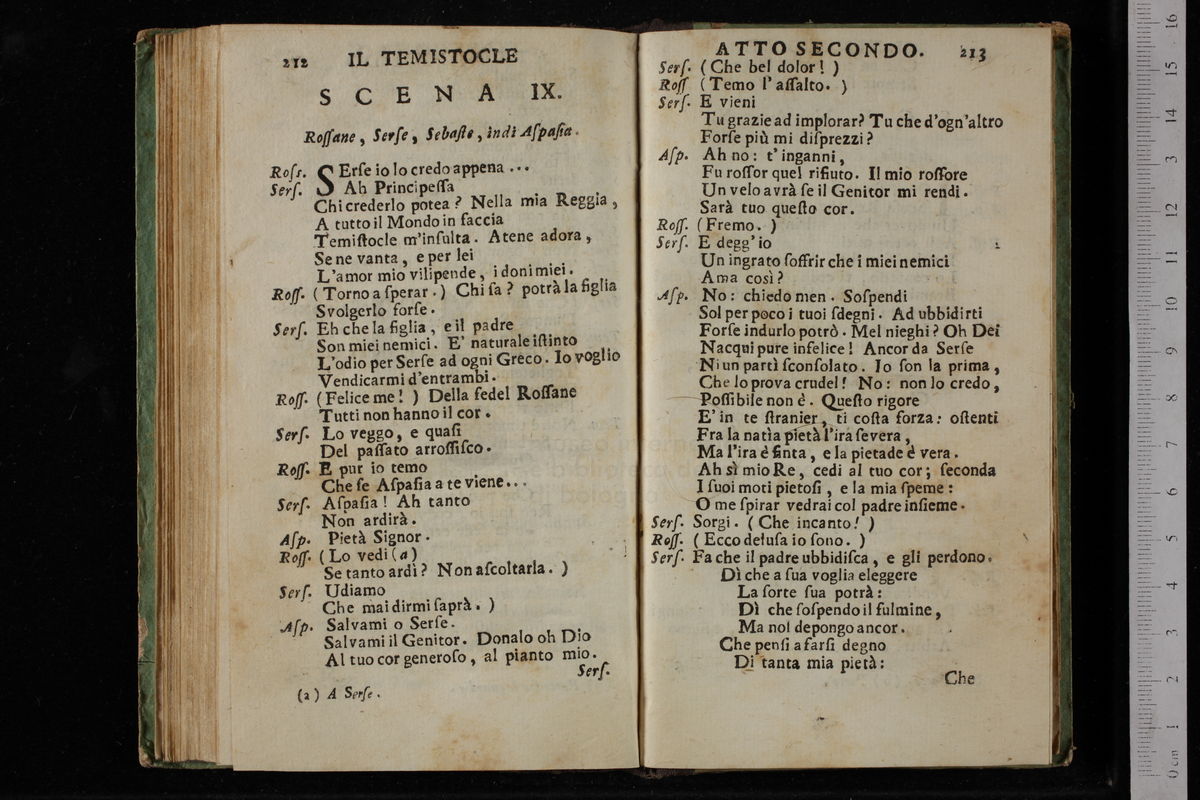 212 IL TEMISTOCLE
SCENA IX.
Roſſane, Serſe, Sebaſte, indi Aſpaſia.
Roſs. SErſe io lo credo appena ...
Serſ. Ah Principeſſa
Chi crederlo potea? Nella mia Reggia,
A tutto il Mondo in faccia
Temiſtocle m'inſulta. Atene adora,
Se ne vanta, e per lei
L'amor mio vilipende, i doni miei.
Roſſ. (Torno a ſperar.) Chi ſa? potrà la figlia
Svolgerlo forſe.
Serſ. Eh che la figlia, e il padre
Son miei nemici. E' naturale iſtinto
L'odio per Serſe ad ogni Greco. Io voglio
Vendicarmi d'entrambi.
Roſſ. (Felice me!) Della fedel Roſſane
Tutti non hanno il cor.
Serſ. Lo veggo, e quaſi
Del paſſato arroſſiſco.
Roſſ. E pur io temo
Che ſe Aſpaſia a te viene...
Serſ. Aſpaſia! Ah tanto
Non ardirà.
Aſp. Pietà Signor.
Roſſ. (Lo vedi (a)
Se tanto ardì? Non aſcoltarla.)
Serſ. Udiamo
Che mai dirmi ſaprà.)
Aſp. Salvami o Serſe.
Salvami il Genitor. Donalo oh Dio
Al tuo cor generoſo, al pianto mio.
Serſ.
(a) A Serſe.
ATTO SECONDO. 213
Serſ. (Che bel dolor!)
Roſſ (Temo l'aſſalto.)
Serſ. E vieni
Tu grazie ad implorar? Tu che d'ogn'altro
Forſe più mi diſprezzi?
Aſp. Ah no: t'inganni,
Fu roſſor quel rifiuto. Il mio roſſore
Un velo avrà ſe il Genitor mi rendi.
Sarà tuo queſto cor.
Roſſ. (Fremo.)
Serſ. E degg'io
Un ingrato ſoffrir che i miei nemici
Ama così?
Aſp. No: chiedo men. Soſpendi
Sol per poco i tuoi ſdegni. Ad ubbidirti
Forſe indurlo potrò. Mel nieghi? Oh Dei
Nacqui pure infelice! Ancor da Serſe
Niun partì ſconſolato. Io ſon la prima,
Che lo prova crudel! No: non lo credo,
Poſſibile non è. Queſto rigore
E' in te ſtranier, ti coſta forza: oſtenti
Fra la natia pietà l'ira ſevera,
Ma l'ira è finta, e la pietade è vera.
Ah sì mio Re, cedi al tuo cor; ſeconda
I ſuoi moti pietoſi, e la mia ſpeme:
O me ſpirar vedrai col padre inſieme.
Serſ. Sorgi. (Che incanto!)
Roſſ. (Ecco deluſa io ſono.)
Serſ. Fa che il padre ubbidiſca, e gli perdono.
Dì che a ſua voglia eleggere
La ſorte ſua potrà:
Dì che ſoſpendo il fulmine,
Ma nol depongo ancor.
Che penſi a farſi degno
Di tanta mia pietà:
Che